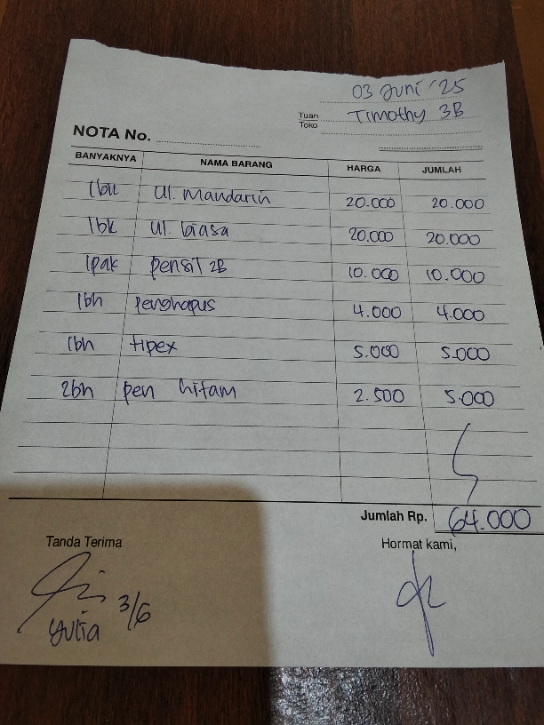 03 Juni '25
Tuan Timothy 3B
Toko
NOTA No.
BANYAKNYA NAMA BARANG HARGA JUMLAH
1bk Ul. Mandarin 20.000 20.000
1bk Ul. biasa 20.000 20.000
1pak pensil 2B 10.000 10.000
1bh penghapus 4.000 4.000
1bh tipex 5.000 5.000
2bh pen hitam 2.500 5.000
Jumlah Rp. 64.000
Tanda Terima Hormat kami,
yulia 3/6